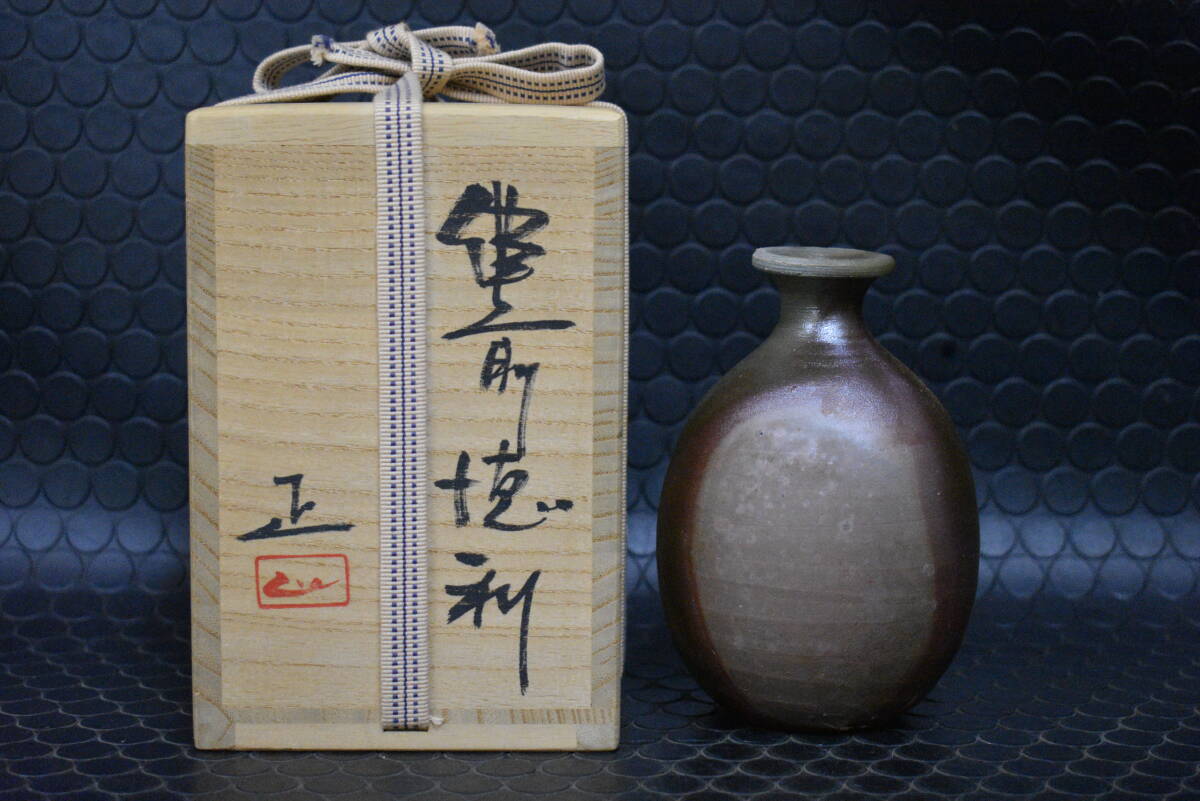 備前徳利
正